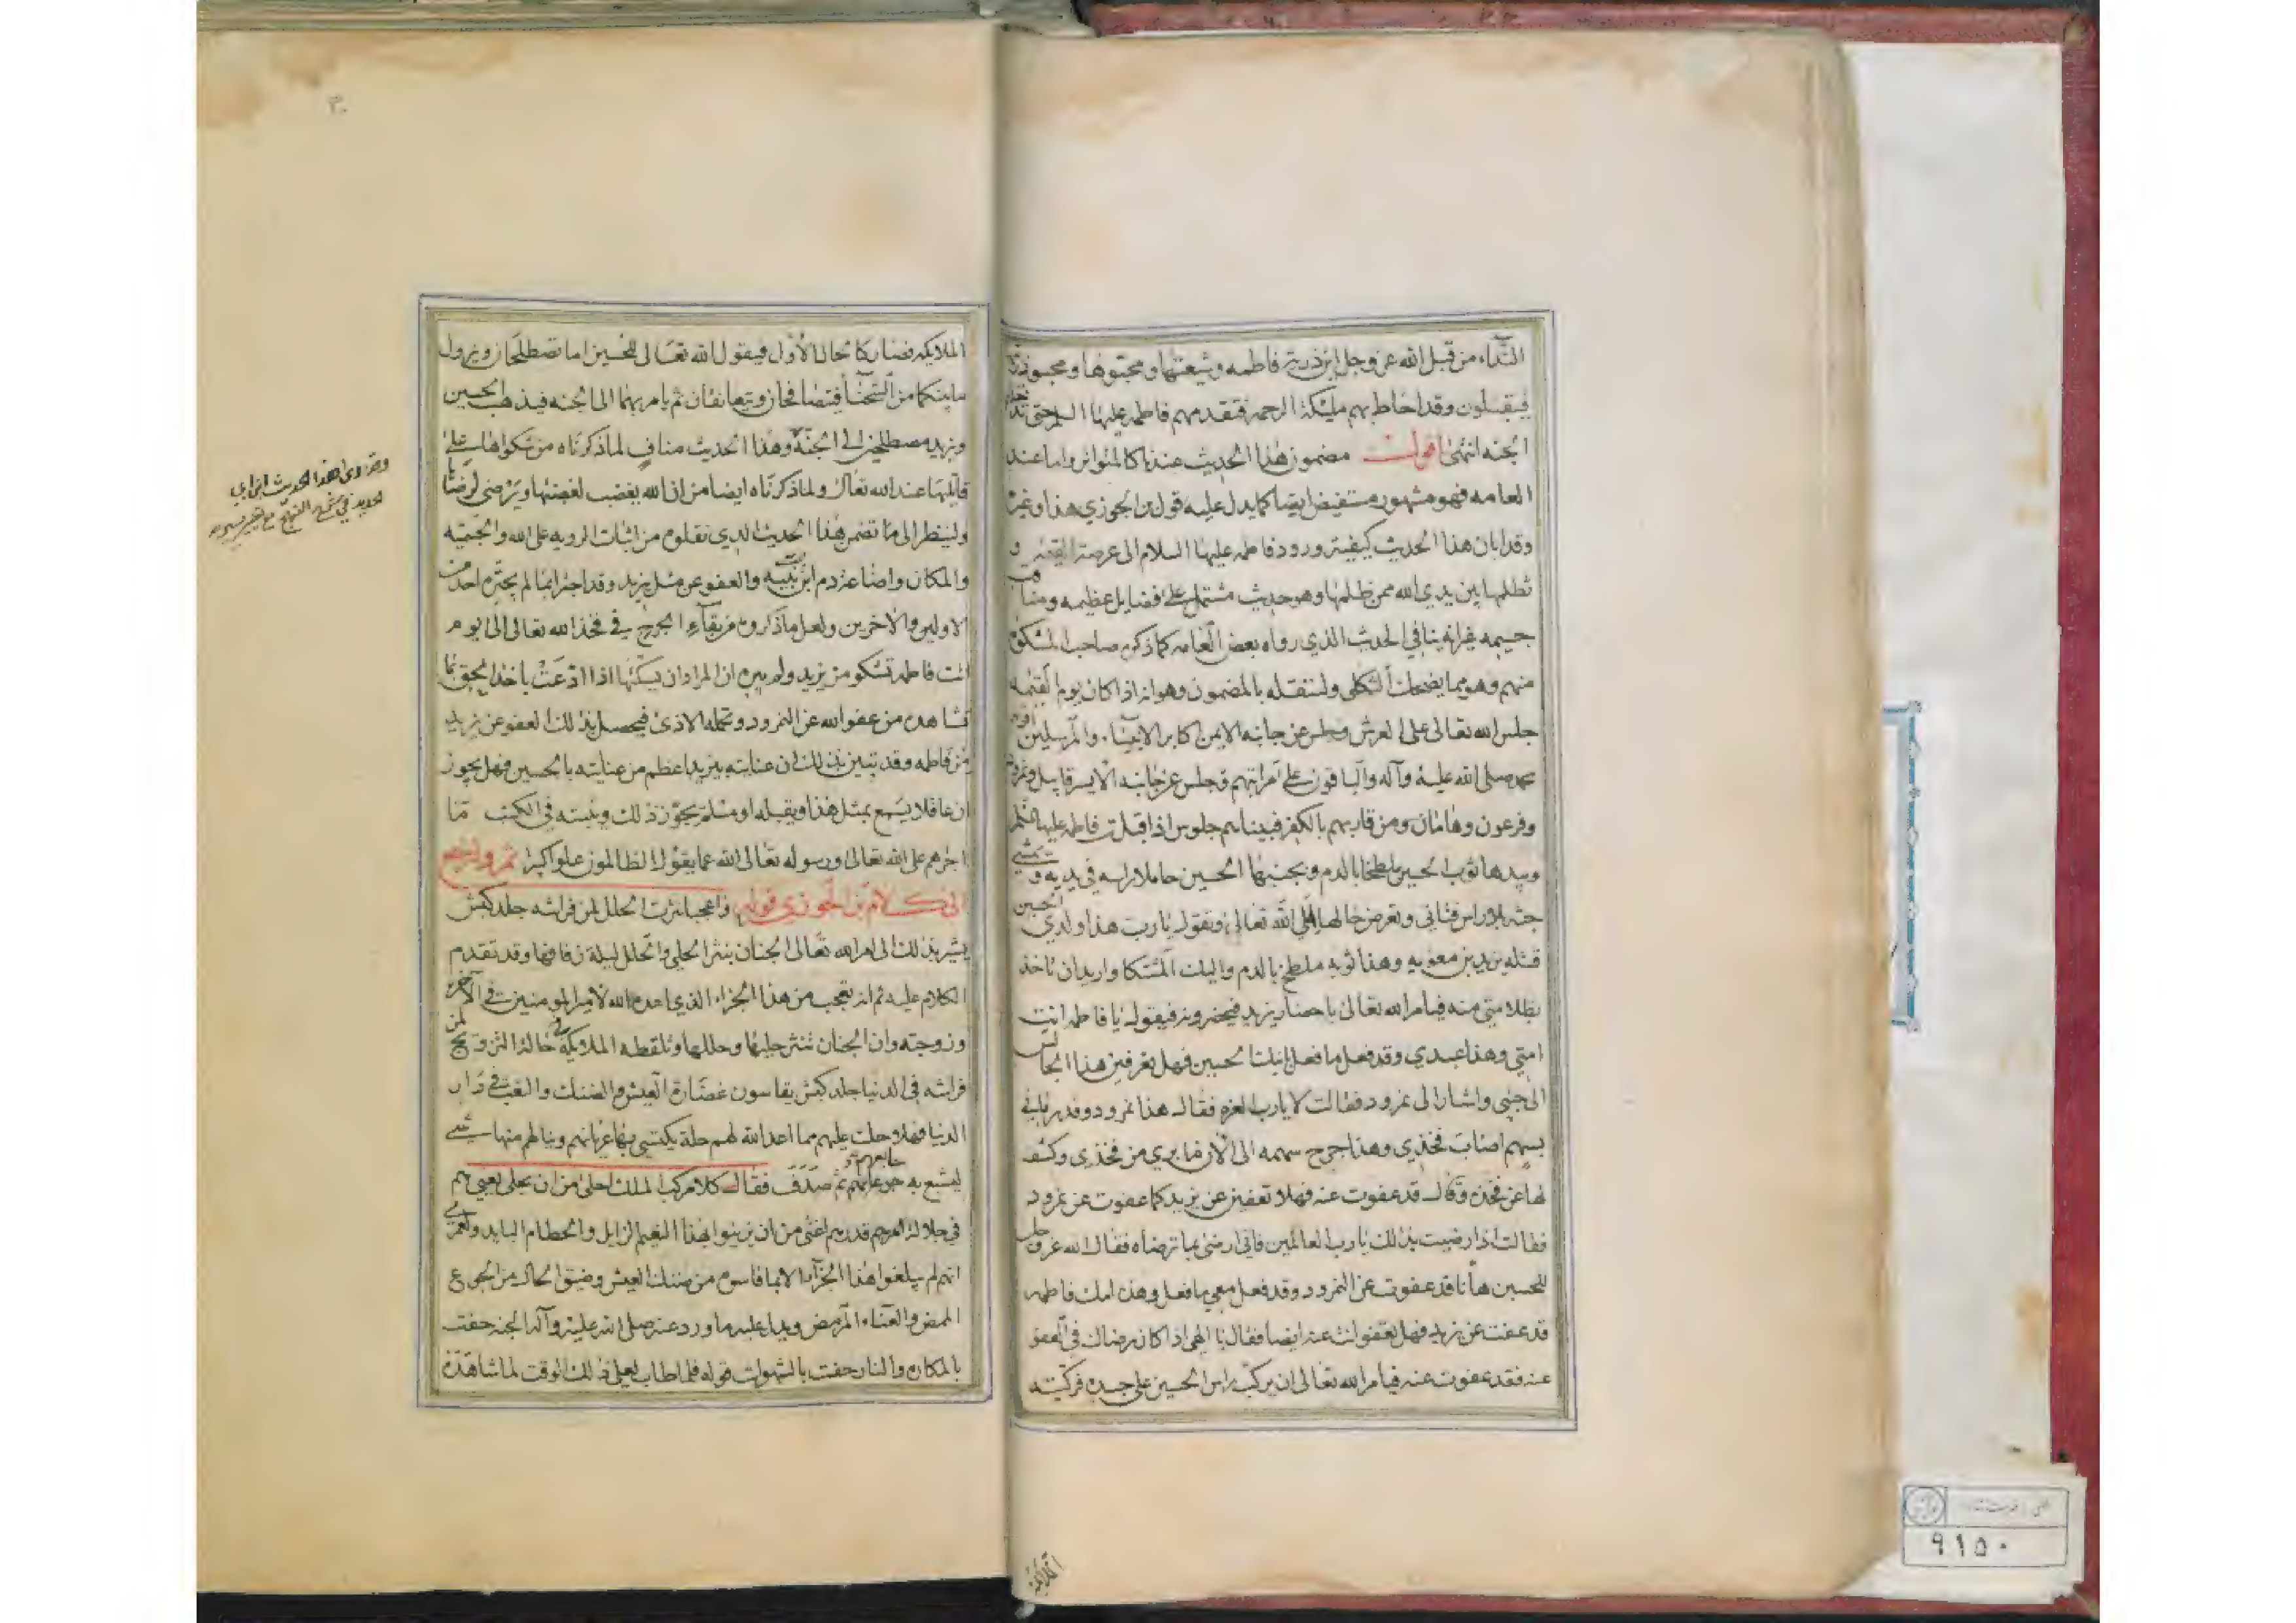 النداء من قبل الله عز وجل اين ذرية فاطمه وشيعتها ومحبوها ومحبو ذريتها
فيقبلون وقد احاط بهم مليكة الرحمه فتقدمهم فاطمه عليها السلم حتى تدخلهم
الجنه انتهى اقول مضمون هذا الحديث عندنا كالمتواتر واما عند
العامه فهو مشهور مستفيض ايضا كما يدل عليه قول بن الجوزي هذا وغيره
وقد ابان هذا الحديث كيفية ورود فاطمه عليها السلام الى عرصة القيمه و
تظلمها بين يدي الله ممن ظلمها وهو حديث مشتمل على فضايل عظيمه ومناقب
جسيمه غير انه ينافي الحديث الذي رواه بعض العامه كما ذكره صاحب المشكوة
منهم وهو مما يضحك الثكلى ولننقله بالمضمون وهو انه اذا كان يوم القيمه
جلس الله تعالى على العرش وجلس عن جانبه الايمن اكابر الانبياء والمرسلين
محمد صلى الله عليه وآله والباقون على مراتبهم وجلس عن جانبه الايسر قابيل ونمرود
وفرعون وهامان ومن قاربهم بالكفر فبيناهم جلوس اذ اقبلت فاطمه عليها السلم
وبيدها ثوب الحسين ملطخا بالدم وبجنبها الحسين حاملا راسه في يديه و يمشي
جثه بلا راس فتاتي وتعرض حالها الى الله تعالى وتقول يا رب هذا ولدي الحسين
قتله يزيد بن معويه وهذا ثوبه ملطخ بالدم واليك المشتكا واريد ان تاخذ
بظلامتي منه فيامر الله تعالى باحضار يزيد فيحضرونه فيقول يا فاطمه انت
امتي وهذا عبدي وقد فعل ما فعل بابنك الحسين فهل تعرفين هذا الجالس
الى جنبي واشار الى نمرود فقالت لا يا رب العزه فقال هذا نمرود وقد رماني
بسهم اصاب فخذي وهذا جرح سهمه الى الآن ما بري من فخذي وكشف
لها عن فخذه وقال قد عفوت عنه فهلا تعفين عن يزيد كما عفوت عن نمرود
فقالت اذا رضيت بذلك يا رب العالمين فاني ارضى بما ترضاه فقال الله عز وجل
للحسين ها انا قد عفوت عن النمرود وقد فعل معي ما فعل وهذه امك فاطمه
قد عفت عن يزيد فهل تعفو انت عنه ايضا فقال يا الهي اذا كان رضاك في العفو
عنه فقد عفوت عنه فيامر الله تعالى ان يركب راس الحسين على جسده فركبته
الملايكه
الملايكه فصار كالحال الاول فيقول الله تعالى للحسين اما تصطلحان ويزول
ما بينكما من الشحنا فيتصافحان ويتعانقان ثم يامر بهما الى الجنه فيذهب الحسين
ويزيد مصطلحين الى الجنة وهذا الحديث مناف لما ذكرناه من شكواها على
قاتليها عند الله تعالى ولما ذكرناه ايضا من ان الله يغضب لغضبها ويرضى لرضاها
ولننظر الى ما تضمن هذا الحديث الذي نقلوه من اثبات الرويه على الله والجسميه
والمكان واضاعة دم ابن بنت نبيه والعفو عن مثل يزيد وقد اجترا بما لم يجتره احد من
الاولين والآخرين ولعل ما ذكروه من بقاء الجرح في فخذ الله تعالى الى يوم
اتت فاطمه تشكو من يزيد ولم يبره ان المراد ان يسكتها اذا ادعت باخذ الحق بما
تشاهده من عفو الله عن النمرود وتحمله الاذى فيحصل بذلك العفو عن يزيد
من فاطمه وقد تبين بذلك ان عنايته بيزيد اعظم من عنايته بالحسين فهل يجوز
ان عاقلا يسمع بمثل هذا ويقبله او مسلم يجوز ذلك ويثبته في الكتب ما
اجراهم على الله تعالى ورسوله تعالى الله عما يقول الظالمون علوا كبيرا ثم ولنرجع
الى كلام بن الجوزي قوله واعجبا نثرت الحلل لمن فراشه جلد كبش
يشير بذلك الى امر الله تعالى الجنان بنثر الحلي والحلل ليلة زفافها وقد تقدم
الكلام عليه ثم انه يتعجب من هذا الجزاء الذي اعده الله لامير المومنين في الآخره
وزوجته وان الجنان تنثر حليها وحللها وتلقطه الملايكة في حالة التزويج لمن
فراشه في الدنيا جلد كبش يقاسون غضارة العيش والضنك والتعب في دار
الدنيا فهلا وجلت عليهم مما اعد الله لهم حلة يكتسي بها عاريهم وينالهم منها شيء
ليشبع به جوعانهم جايعهم ثم صدف فقال كلام ركب الملك احلى من ان يحلى يعني هم
في جلالة امرهم وقدرهم اغنى من ان يزينوا بهذا النعيم الزايل والحطام البايد ولعمري
انهم لم يبلغوا هذا الجزآء الا بما قاسوه من ضنك العيش وضيق الحال من الجوع
الممض والعناء المرمض ويدل عليه ما ورد عنه صلى الله عليه وآله الجنه حفت
بالمكاره والنار حفت بالشهوات قوله فلما طاب لعلي ذلك الوقت لما شاهده
وقد روى هذا الحديث ابن ابي
الحديد في شرح النهج مع تغيير يسير
٩١٥٠